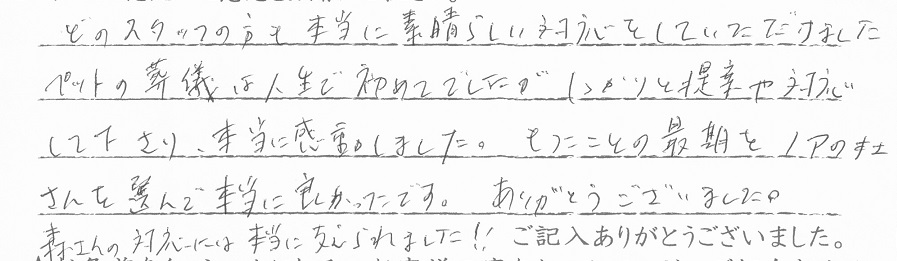 どのスタッフの方も本当に素晴らしい対応をしていただきました
ペットの葬儀は人生で初めてでしたがしっかりと提案や対応
して下さり、本当に感動しました。もこことの最期をノアの杜
さんを選んで本当に良かったです。ありがとうございました。
森さんの対応には本当に支えられました!!ご記入ありがとうございました。